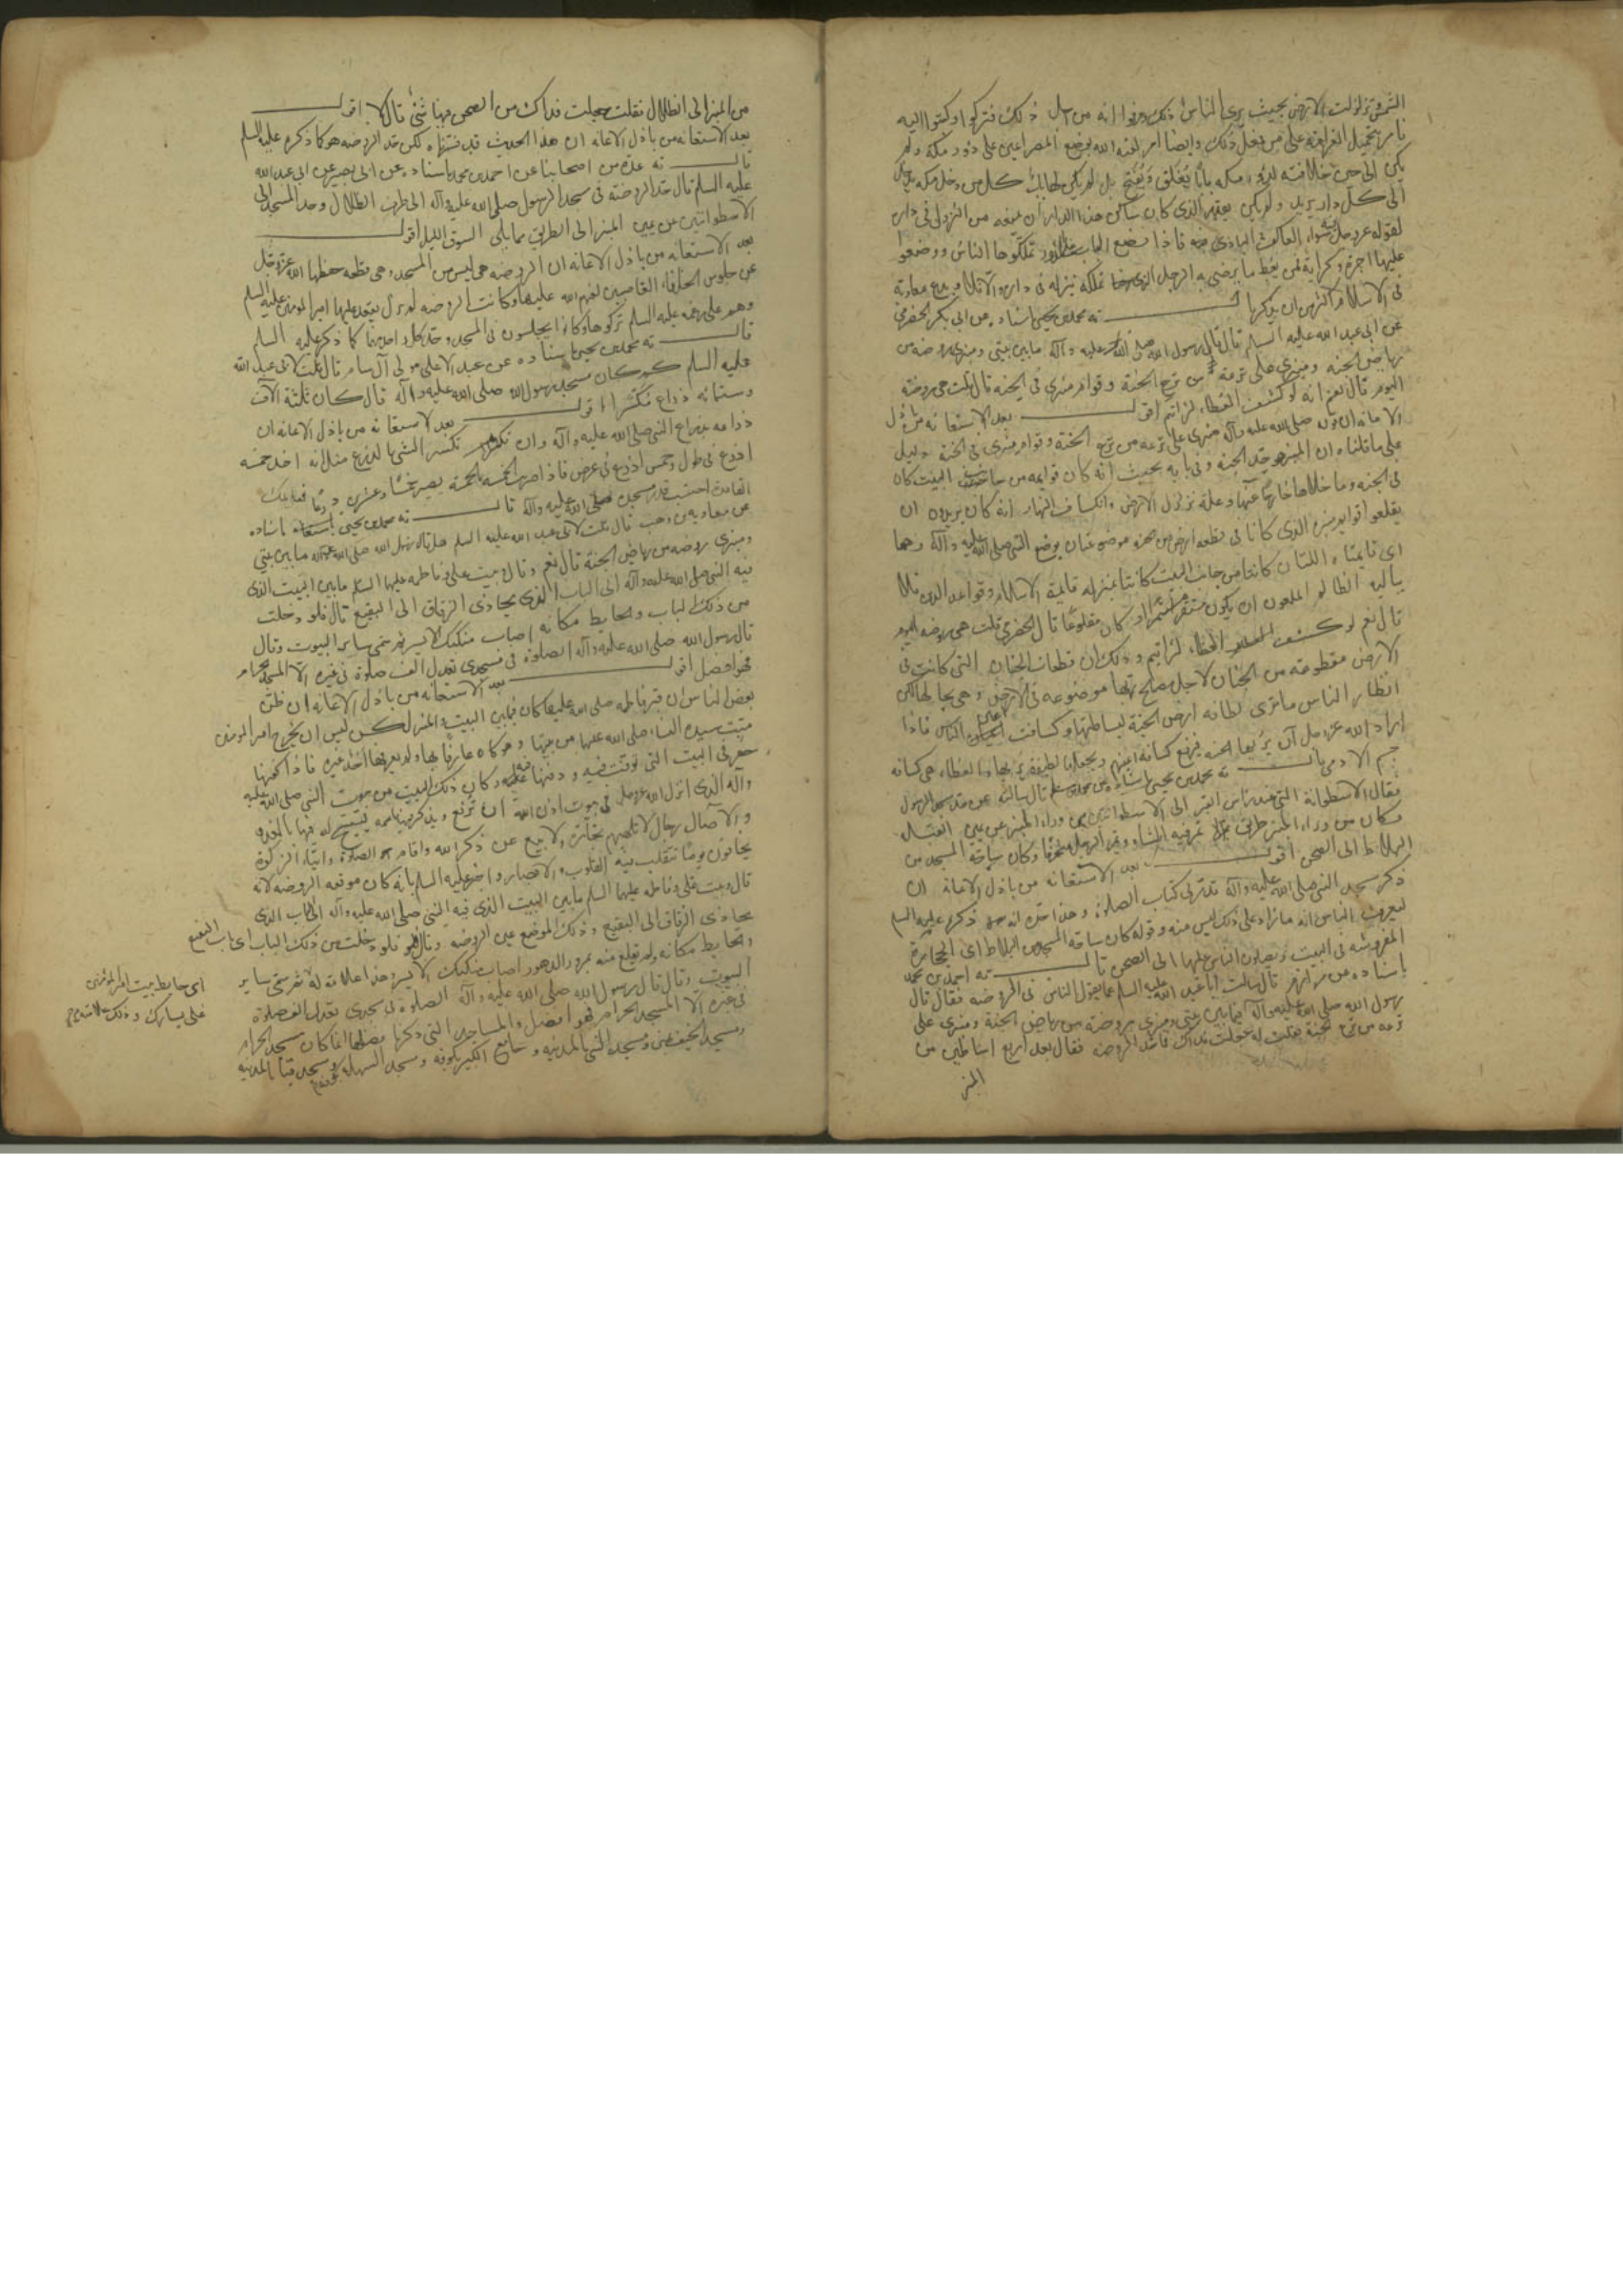 الشمس وتزلزلت الارض بحيث يرى الناس ذلك وعرفوا انه من اجل ذلك فتركوا وكتبوا اليه
على من يفعل ذلك وايضا امر لعنه الله بوضع المصراعين على دور مكة ولم
يكن الى حين خلافته لدور مكه بابا يُغلق ويُفتح بل لم يكن لها باب كل من دخل مكه يدخل
الى كل دار يريد ولم يكن يقدر الذى كان ساكن هذا الدار ان يمنعه من النزول فى داره
لقوله عز وجل سواء العاكف فيه والبادى فاذا وضع الباب على الدور تملكوها الناس ووضعوا
عليها اجرة وكراية لمن يعط ما يرضى به الرجل الذى تملكه ينزله فى داره والا فلا وبدع معاوية
فى الاسلام اكثر من ان يذكرها قال ته محمد بن يحيى باسناده عن ابى بكر الحضرمى
عن ابى عبد الله عليه السلم قال قال رسول الله صلى الله عليه وآله ما بين بيتى ومنبرى روضة من
رياض الجنه ومنبرى على ترعة من ترع الجنة وقوائم منبرى فى الجنه قال قلت هى روضة
اليوم قال نعم انه لو كشف الغطاء لرايتم اقول بعد الاستعانه من باذل
الاعانه ان قوله صلى الله عليه وآله منبرى على ترعه من ترع الجنة وقوائم منبرى فى الجنة دليل
على ما قلناه ان المنبر هو حد الجنه وفى بابه بحيث انه كان قوايمه من جانب البيت كان
فى الجنه وما خلاها خارجا عنها وعلة تزلزل الارض وانكساف النهار انه كان يريدون ان
يقلعوا قوايم منبره الذى كانا فى قطعه ارض من الجنه موضوعتان بوضع النبى صلى الله عليه وآله وهما
اى قايمتاه اللتان كانتا من جانب البيت كانتا بمنزله قايمة الاسلام وقواعد الدين فلا
يباليه الظالم الملعون ان يكون مستقرا مستمرا او كان مقلوعا قال الحضرمى قلت هى روضه اليوم
قال نعم لو كشف الغطاء لرايتم وذلك ان قطعات الجنان التى كانت فى
الارض مقطوعه من الجنان لاجل مصالح ربها موضوعه فى الارض وهى بحالها لكن
انظار الناس ما ترى لطافه ارض الجنة لبساطتها وكسافت اعيان الناس فاذا
اراد الله عز وجل ان يريها احد يرفع كسافة اعينهم ويجعلها لطيفة يريها والغطاء هى كسافه
جسم الادمى قال ته محمد بن يحيى باسناده عن محمد بن مسلم قال سالته عن حد مسجد الرسول
فقال الاسطوانة التى عند راس القبر الى الاسطوانتين من وراء المنبر عن يمين القبلة
وكان من وراء المنبر طريق تمر فيه الشاه ويمر الرجل منحرفا وكان ساحة المسجد من
البلاط الى الصحن اقول بعد الاستعانه من باذل الاعانه ان
ذكر مسجد النبى صلى الله عليه وآله قد مر فى كتاب الصلوة وهذا حده ذكره عليه السلم
ليعرف الناس انه ما زاد على ذلك ليس منه وقوله كان ساحة المسجد من البلاط اى الحجارة
المفروشه فى البيت ويصلون الناس عليها الى الصحن قال ته احمد بن محمد
باسناده عن مرازم قال سالت ابا عبد الله عليه السلم عما يقول الناس فى الروضه فقال قال
رسول الله صلى الله عليه وآله فيما بين بيتى ومنبرى روضة من رياض الجنة ومنبرى على
ترعه من ترع الجنة فقلت له جعلت فداك فما حد الروضه فقال بعد اربع اساطين من
المنبر
من المنبر الى الظلال فقلت جعلت فداك من الصحن فيها شئ قال لا اقول
بعد الاستعانه من باذل الاعانه ان هذا الحديث قد فسّرناه لكن حد الروضه هو كما ذكره عليه السلم
قال ته عدة من اصحابنا عن احمد بن محمد باسناده عن ابى بصير عن ابى عبد الله
عليه السلم قال حد الروضة فى مسجد الرسول صلى الله عليه وآله الى طرف الظلال وحد المسجد الى
الاسطوانتين عن يمين المنبر الى الطريق مما يلى السوق الليل اقول
بعد الاستعانه من باذل الاعانه ان الروضه هى ليس من المسجد وهى قطعه حفظها الله عز وجل
عن جلوس الخلفاء الغاصبين لعنهم الله عليها وكانت الروضه لم يزل يقعد عليها امير المومنين عليه السلم
وهم على رغمه عليه السلم تركوها وكانوا يجلسون فى المسجد وحد كل واحد منهما كما ذكر عليه السلم
قال ته محمد بن يحيى باسناده عن عبد الاعلى مولى آل سام قال قلت لابى عبد الله
عليه السلم كم كان مسجد رسول الله صلى الله عليه وآله قال كان ثلثة آلاف
وستمائه ذراع مكسّرا اقول بعد الاستعانه من باذل الاعانه ان
ذراعه بذراع النبى صلى الله عليه وآله وان تكسّر الشى بالذرع مثل انه اخذ خمسه
اذرع فى طول وخمس اذرع فى عرض فاذا ضرب الخمسه بالخمسه يصير خمسا وعشرين ذرعا فبذلك
القاعدة احتسب قدر مسجده صلى الله عليه وآله قال ته محمد بن يحيى باسناده
عن معاويه بن وهب قال قلت لابى عبد الله عليه السلم هل قال رسول الله صلى الله عليه وآله ما بين بيتى
ومنبرى روضه من رياض الجنة قال نعم وقال وبيت على وفاطمه عليهما السلم ما بين البيت الذى
فيه النبى صلى الله عليه وآله الى الباب الذى يحاذى الزقاق الى البقيع قال فلو دخلت
من ذلك الباب والحايط مكانه اصاب منكبك الايسر ثم سمى ساير البيوت وقال
قال رسول الله صلى الله عليه وآله الصلوة فى مسجدى تعدل الف صلوة فى غيره الا المسجد الحرام
فهو افضل اقول بعد الاستعانه من باذل الاعانه ان ظن
بعض الناس ان قبر فاطمه صلى الله عليها كان فيما بين البيت والمنبر لكن ليس ان يخرج امير المومنين
ميّت سيدة النساء صلى الله عليها من بيتها
حفر فى البيت التى توفت فيه ودفنها فيه وكان ذلك البيت من بيوت النبى صلى الله عليه
وآله الذى انزل الله عز وجل فى بيوت اذن الله ان تُرفع ويذكر فيها اسمه يسبّح له فيها بالغدو
والاصال رجال لا تلهيهم تجارة ولا بيع عن ذكر الله واقام الصلوة وايتاء الزكوة
يخافون يوما تتقلب فيه القلوب والابصار واخبر عليه السلم بانه كان موقعه الروضه لانه
قال وبيت على وفاطمه عليهما السلم ما بين البيت الذى فيه النبى صلى الله عليه وآله الى الباب الذى
يحاذى الزقاق الى البقيع وذلك الموضع عين الروضه وقال فلو دخلت من ذلك الباب اى باب البقيع
والحايط مكانه ولم تقلع منه بمرور الدهور اصاب منكبك الايسر وهذا علامة له ثم سمّى ساير
البيوت وقال قال رسول الله صلى الله عليه وآله الصلوة فى مسجدى تعدل الف صلوة
فى غيره الا المسجد الحرام فهو افضل والمساجد التى ذكرها فضلها انما كان مسجد الحرام
ومسجد الخيف بمنى ومسجد النبى بالمدينه وجامع الكبير بكوفه ومسجد السهله بكوفه ومسجد قبا بالمدينه
اى حايط بيت امير المومنين
على يسارك وذلك علامته